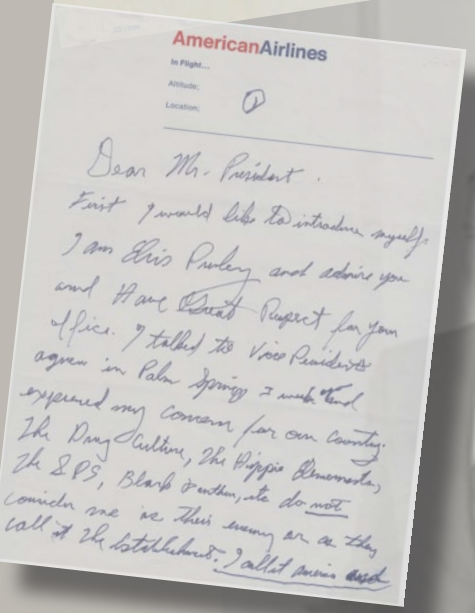 AmericanAirlines
In Flight...
Altitude;
Location;
1
Dear Mr. President.
First I would like to introduce myself.
I am Elvis Presley and admire you
and Have Great Respect for your
office. I talked to Vice President
agnew in Palm Springs 3 weeks and
expressed my concern for our country.
The Drug Culture, The Hippie Elements,
The SDS, Black Panthers, etc do not
consider me as their enemy or as they
call it The Establishment. I call it america and